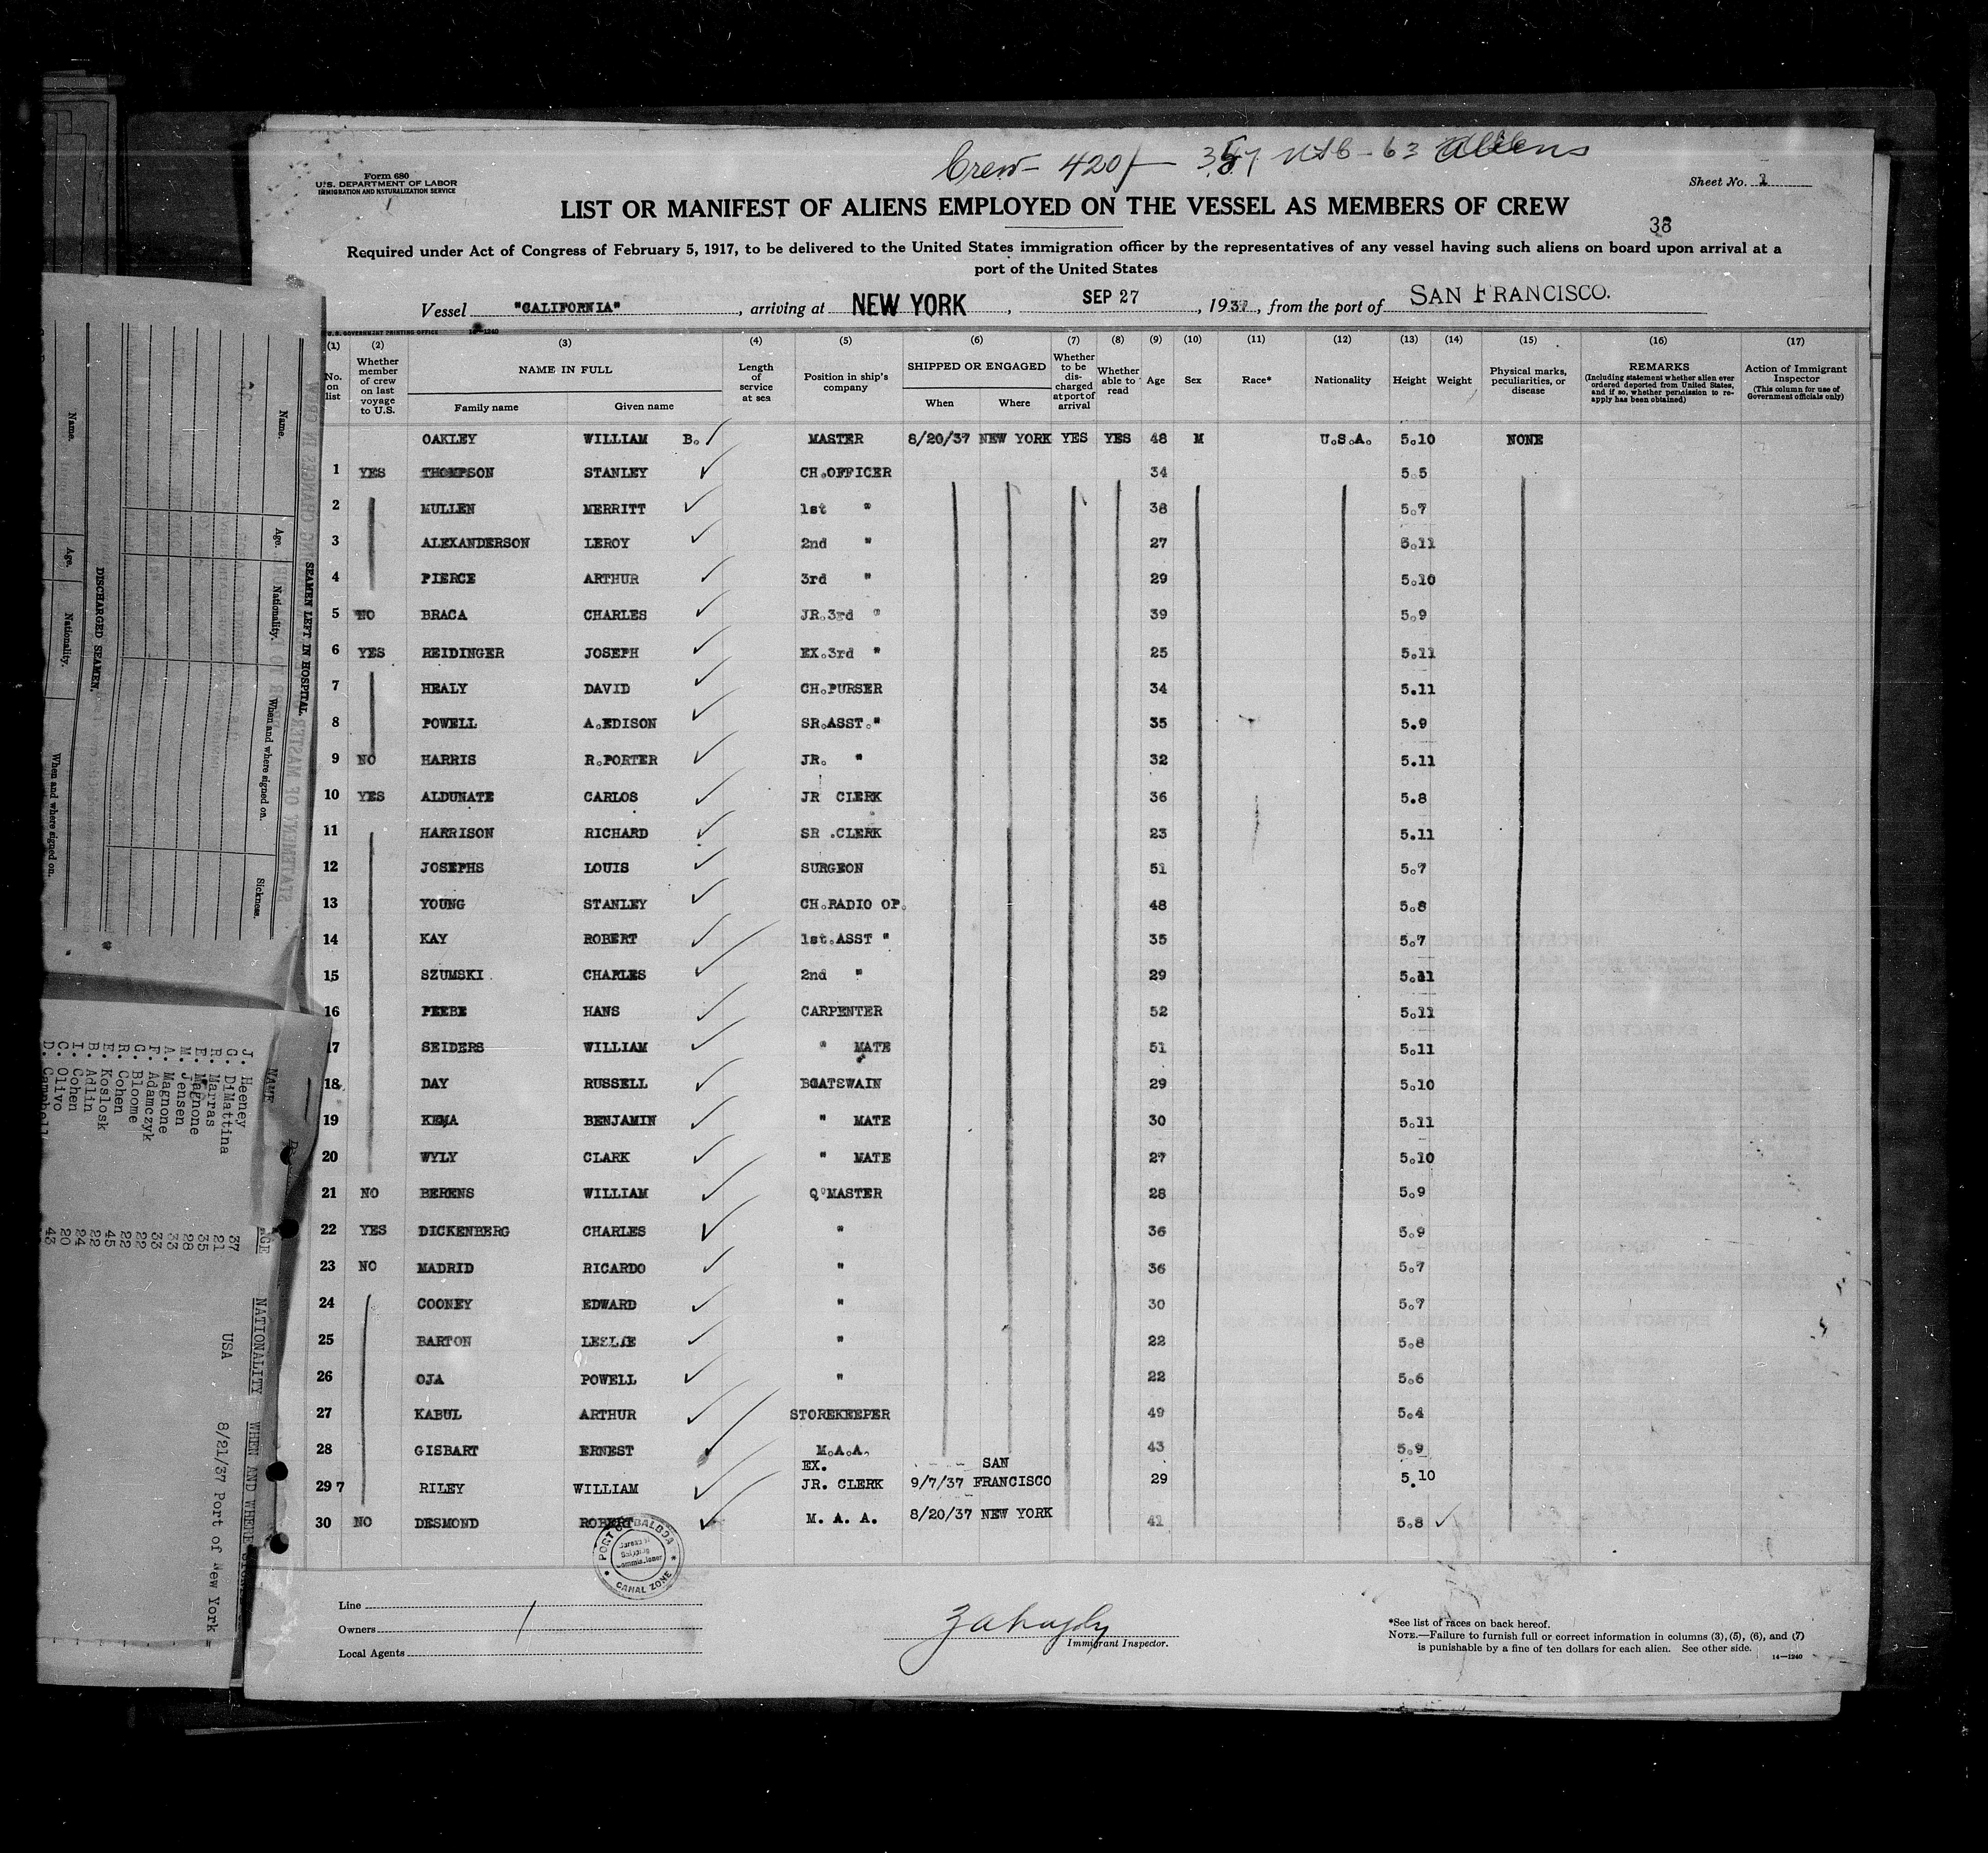 Crew - 420/ - 357 USC - 63 Aliens
Form 680
U.S. DEPARTMENT OF LABOR
IMMIGRATION AND NATURALIZATION SERVICE
Sheet No. 1
LIST OR MANIFEST OF ALIENS EMPLOYED ON THE VESSEL AS MEMBERS OF CREW
38
Required under Act of Congress of February 5, 1917, to be delivered to the United States immigration officer by the representatives of any vessel having such aliens on board upon arrival at a
port of the United States
Vessel "CALIFORNIA", arriving at NEW YORK, SEP 27, 1937, from the port of SAN FRANCISCO.
U.S. GOVERNMENT PRINTING OFFICE 14-1240
(1) No. on list
(2) Whether member of crew on last voyage to U.S.
(3) NAME IN FULL Family name Given name
(4) Length of service at sea
(5) Position in ship's company
(6) SHIPPED OR ENGAGED When Where
(7) Whether to be discharged at port of arrival
(8) Whether able to read
(9) Age
(10) Sex
(11) Race*
(12) Nationality
(13) Height
(14) Weight
(15) Physical marks, peculiarities, or disease
(16) REMARKS (Including statement whether alien ever ordered deported from United States, and if so, whether permission to reapply has been obtained)
(17) Action of Immigrant Inspector (This column for use of Government officials only)
OAKLEY WILLIAM B. MASTER 8/20/37 NEW YORK YES YES 48 M U.S.A. 5.10 NONE
1 YES THOMPSON STANLEY CH.OFFICER 34 5.5
2 MULLEN MERRITT 1st " 38 5.7
3 ALEXANDERSON LEROY 2nd " 27 5.11
4 PIERCE ARTHUR 3rd " 29 5.10
5 NO BRACA CHARLES JR.3rd " 39 5.9
6 YES REIDINGER JOSEPH EX.3rd " 25 5.11
7 HEALY DAVID CH.PURSER 34 5.11
8 POWELL A.EDISON SR.ASST." 35 5.9
9 NO HARRIS R.PORTER JR. " 32 5.11
10 YES ALDUNATE CARLOS JR CLERK 36 5.8
11 HARRISON RICHARD SR .CLERK 23 5.11
12 JOSEPHS LOUIS SURGEON 51 5.7
13 YOUNG STANLEY CH.RADIO OP. 48 5.8
14 KAY ROBERT 1st.ASST " 35 5.7
15 SZUMSKI CHARLES 2nd " 29 5.11
16 PEEBE HANS CARPENTER 52 5.11
17 SEIDERS WILLIAM " MATE 51 5.11
18 DAY RUSSELL BOATSWAIN 29 5.10
19 KEMA BENJAMIN " MATE 30 5.11
20 WYLY CLARK " MATE 27 5.10
21 NO BERENS WILLIAM Q°MASTER 28 5.9
22 YES DICKENBERG CHARLES " 36 5.9
23 NO MADRID RICARDO " 36 5.7
24 COONEY EDWARD " 30 5.7
25 BARTON LESLIE " 22 5.8
26 OJA POWELL " 22 5.6
27 KABUL ARTHUR STOREKEEPER 49 5.4
28 GISBART ERNEST M.A.A. 43 5.9
29 7 RILEY WILLIAM EX. JR. CLERK 9/7/37 SAN FRANCISCO 29 5.10
30 NO DESMOND ROBERT M. A. A. 8/20/37 NEW YORK 41 5.8
PORT OF BALBOA
CANAL ZONE
Line
Owners
Local Agents
Immigrant Inspector.
*See list of races on back hereof.
NOTE.—Failure to furnish full or correct information in columns (3), (5), (6), and (7)
is punishable by a fine of ten dollars for each alien. See other side.
14-1240
SEAMEN LEFT IN HOSPITAL.
Name. Age. Nationality. When and where signed on. Sickness.
DISCHARGED SEAMEN.
Name. Age. Nationality. When and where signed on.
NAME AGE NATIONALITY WHEN AND WHERE
J. Heeney 37 USA 8/21/37 Port of New York
G. DiMattina 21
R. Marras 35
F. Magnone 28
M. Jensen 33
A. Magnone 33
F. Adamczyk 22
G. Bloome 22
R. Cohen 45
E. Koslosk 22
B. Adlin 24
I. Cohen 20
C. Olivo 43
D. Campbell